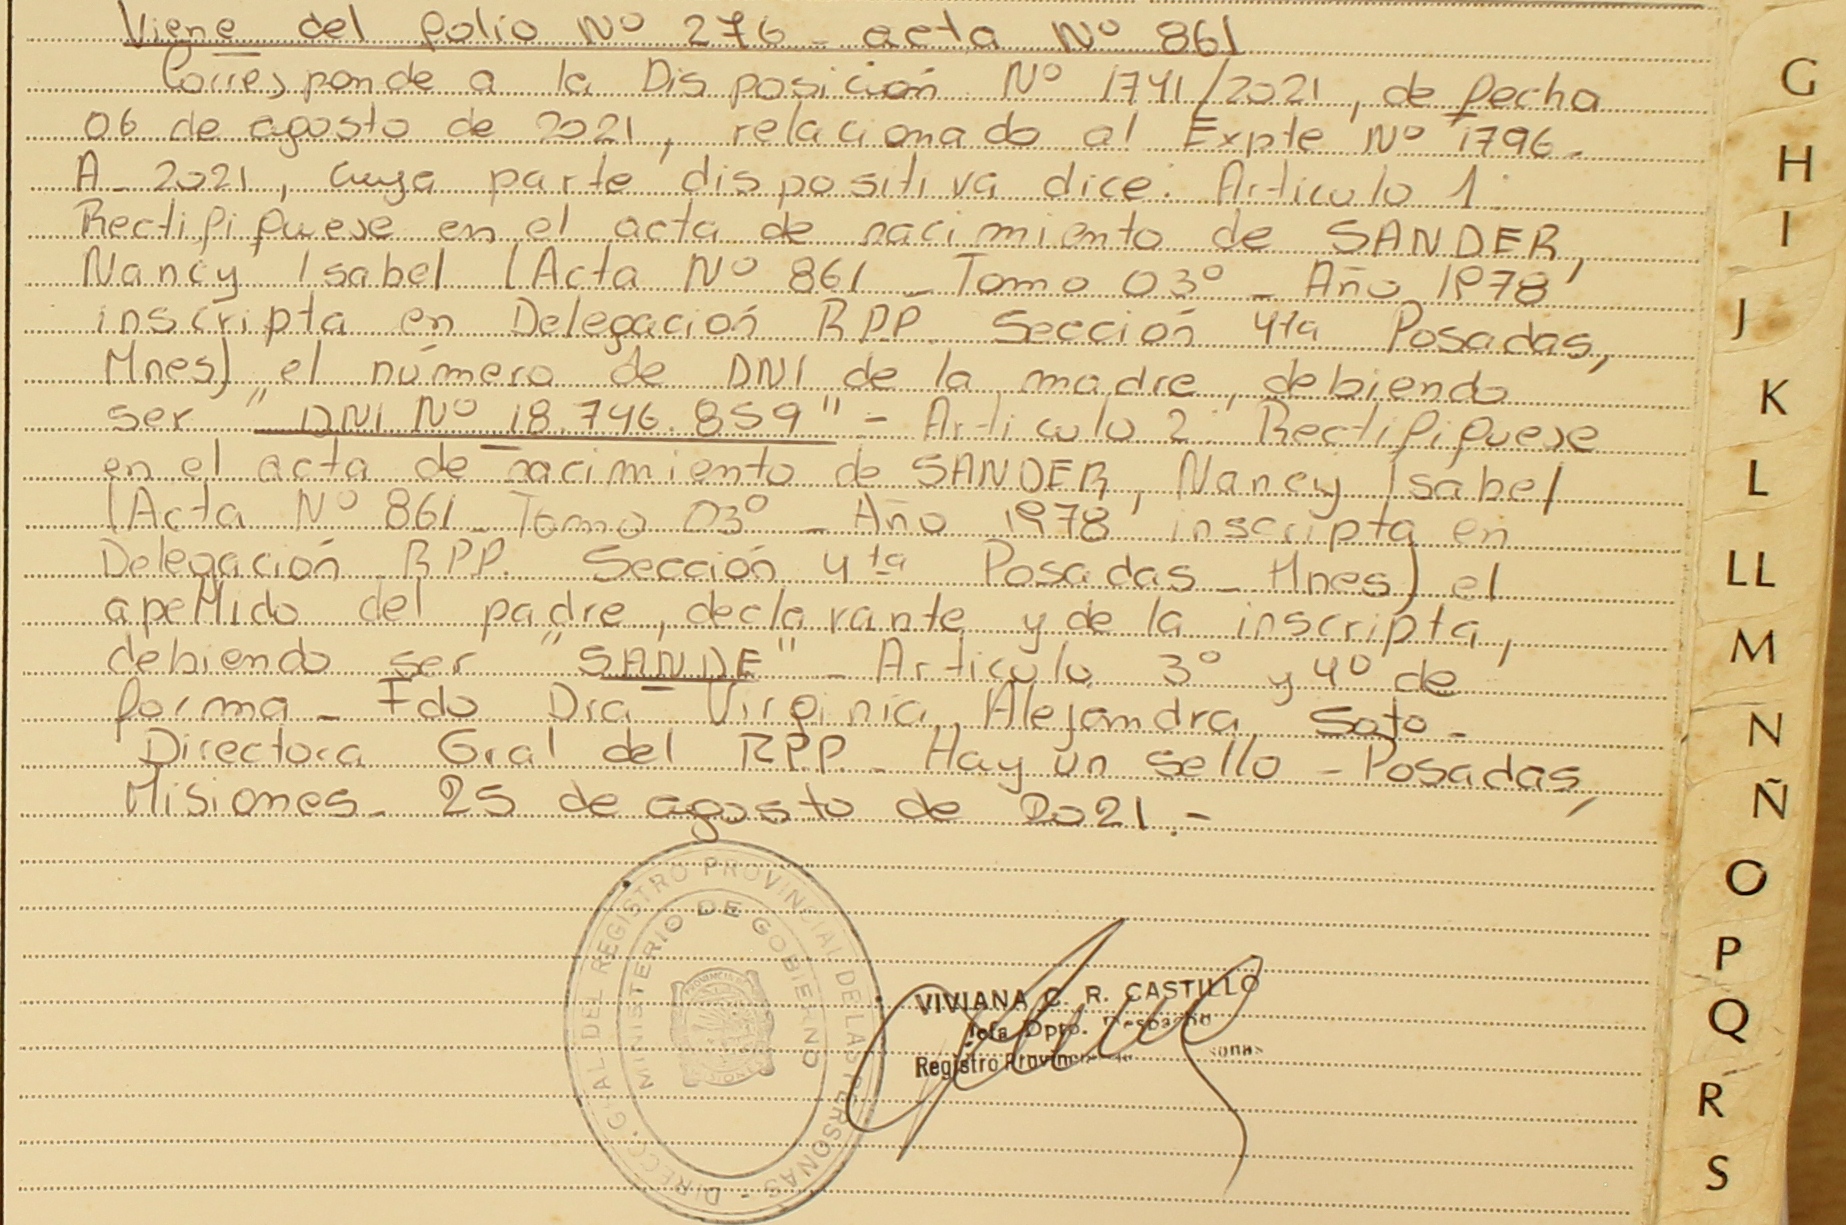 Viene del folio Nº 276 - acta Nº 861
Corresponde a la Disposición Nº 1741/2021, de fecha
06 de agosto de 2021, relacionado al Expte Nº 1796-
A-2021, cuya parte dispositiva dice: Articulo 1:
Rectififuese en el acta de nacimiento de SANDER,
Nancy Isabel (Acta Nº 861 - Tomo 03º - Año 1978
inscripta en Delegación RPP. Sección 4ta Posadas,
Mnes) el número de DNI de la madre, debiendo
ser "DNI Nº 18.746.859" - Articulo 2: Rectififuese
en el acta de nacimiento de SANDER, Nancy Isabel
(Acta Nº 861 - Tomo 03º - Año 1978 inscripta en
Delegación RPP. Sección 4ta Posadas - Mnes) el
apellido del padre, declarante y de la inscripta,
debiendo ser "SANDE" - Articulo 3º y 4º de
forma - Fdo Dra Virginia Alejandra Soto -
Directora Gral del RPP - Hay un sello - Posadas,
Misiones - 25 de agosto de 2021.-
DIRECC. GRAL DEL REGISTRO PROVINCIAL DE LAS PERSONAS -
MINISTERIO DE GOBIERNO
VIVIANA C. R. CASTILLO
Jefa Dpto. Despacho
Registro
G
H
I
J
K
L
LL
M
N
Ñ
O
P
Q
R
S